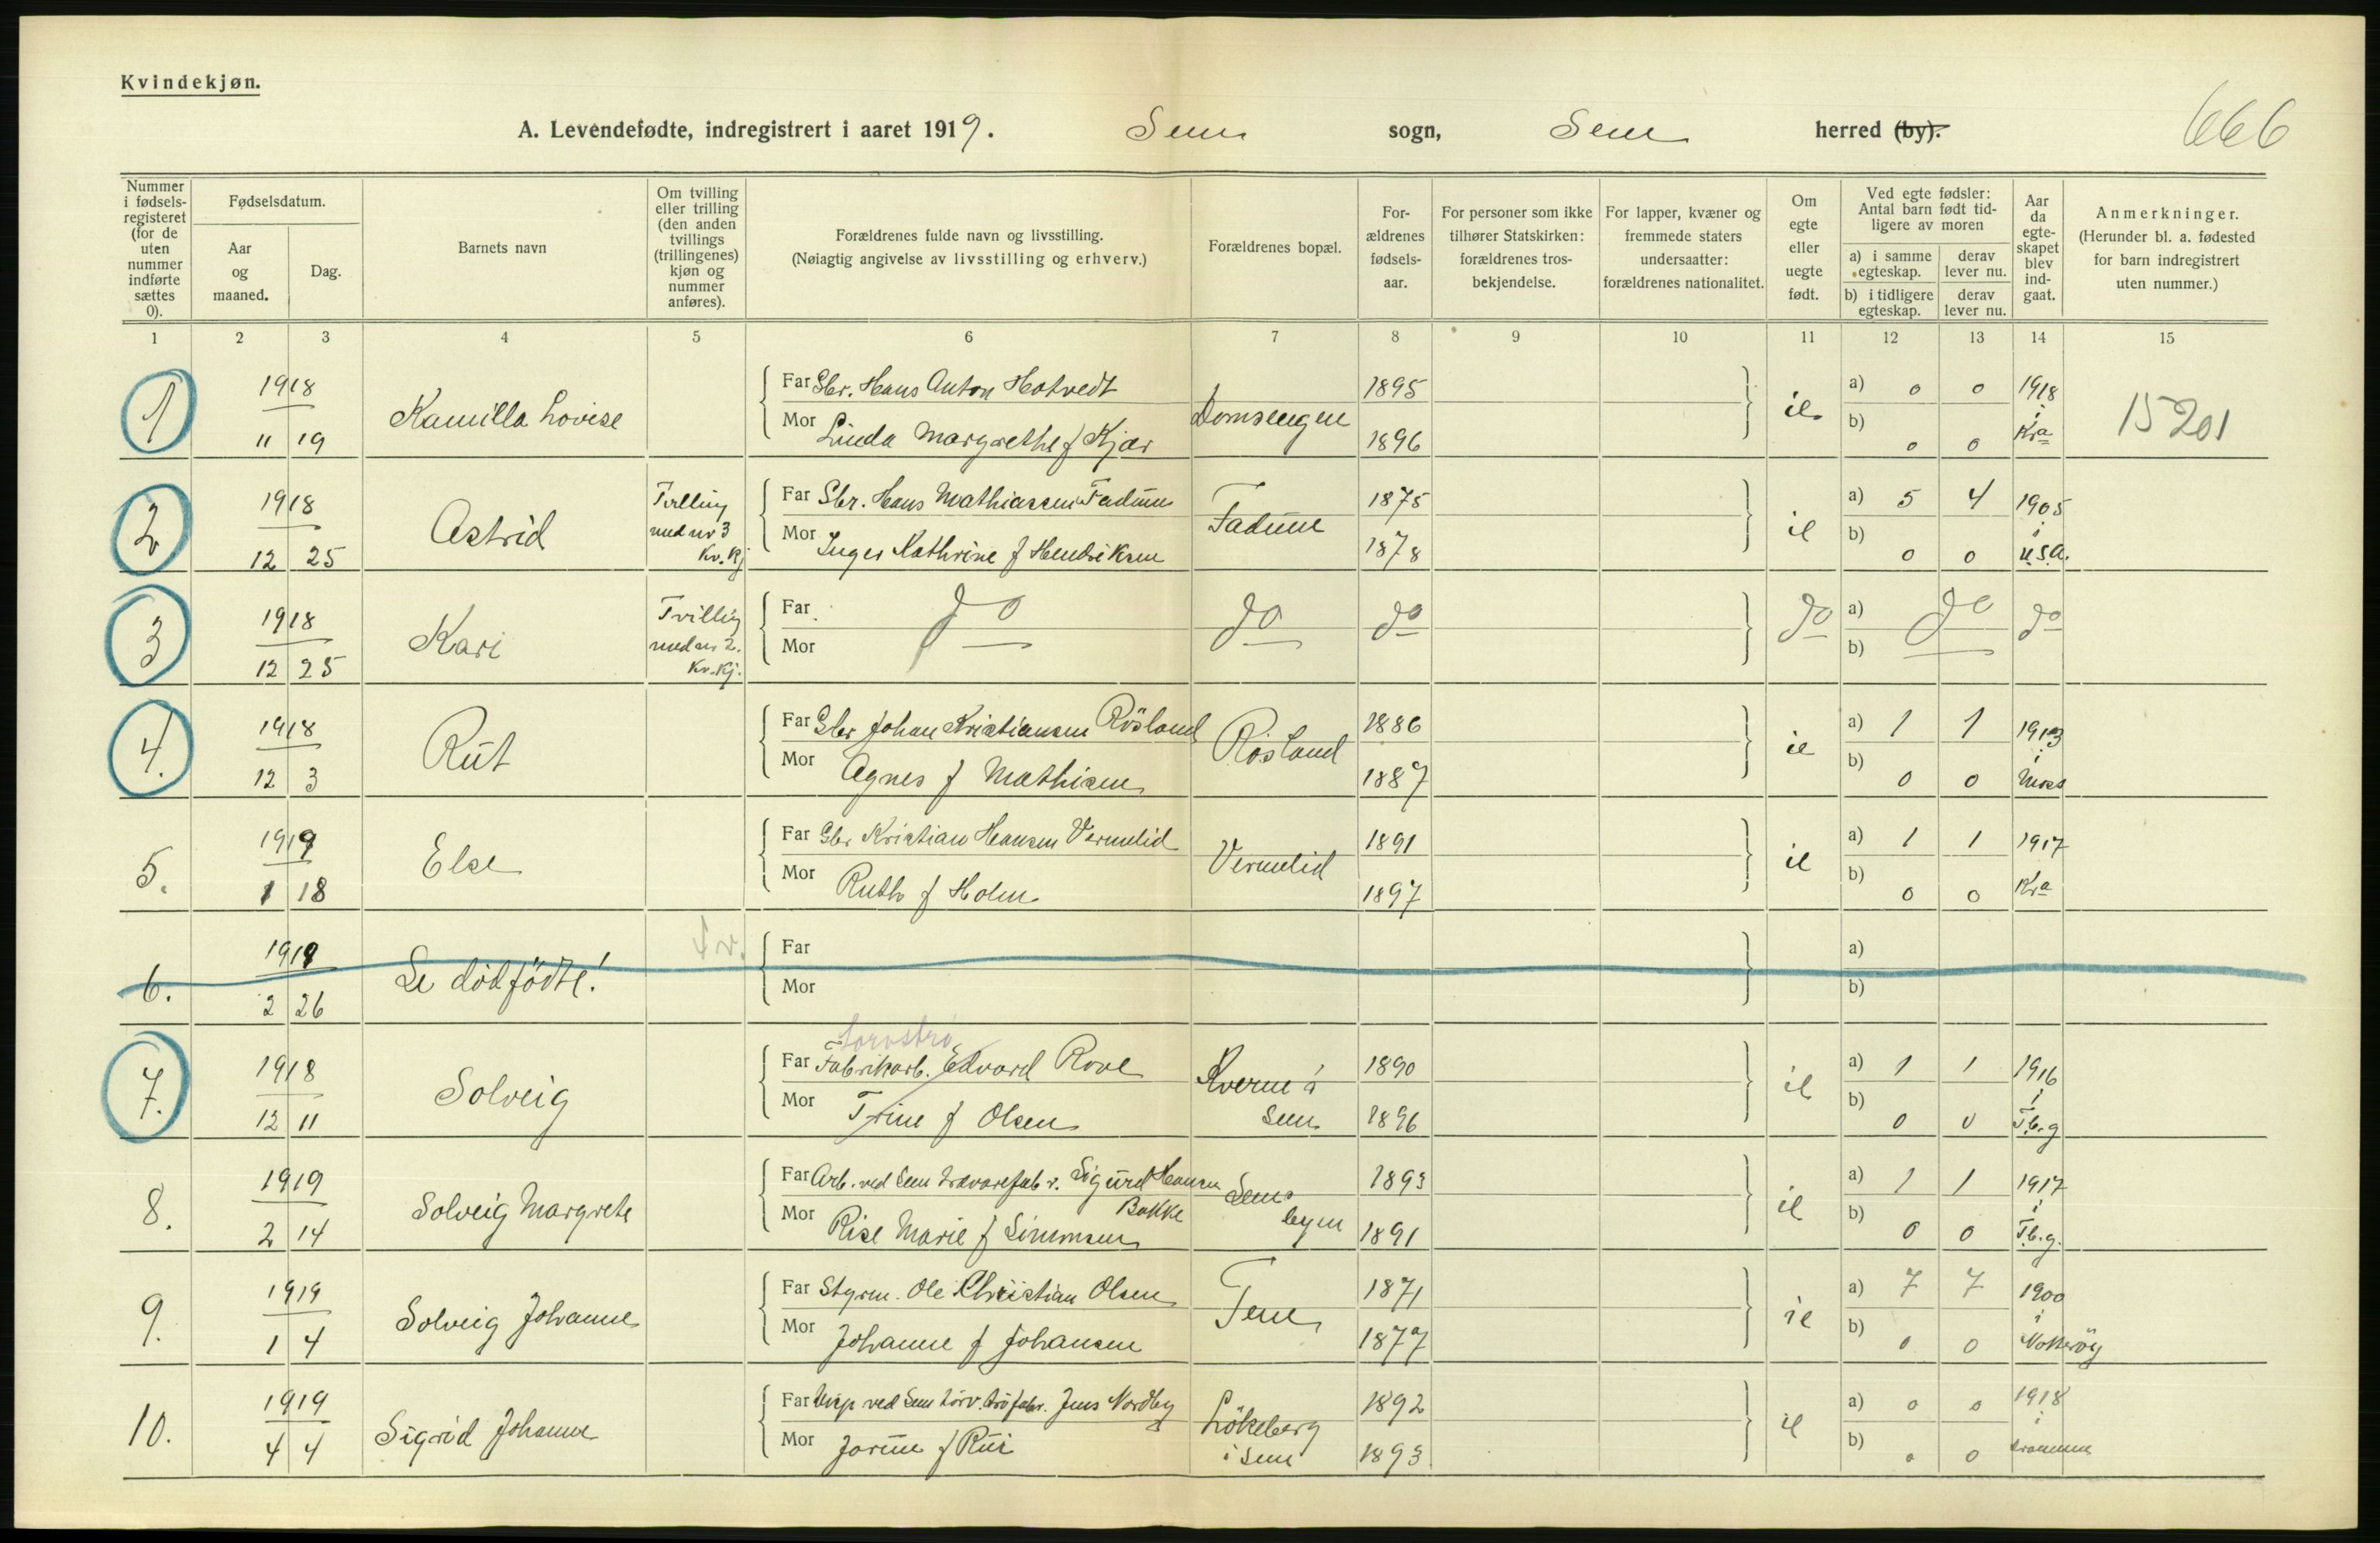 Kvindekjøn.
A. Levendefødte, indregistrert i aaret 1919. Sem sogn, Sem herred (by). 666
Nummer i fødselsregisteret (for de uten nummer indførte sættes 0).
Fødselsdatum.
Aar og maaned.
Dag.
Barnets navn
Om tvilling eller trilling (den anden tvillings (trillingenes) kjøn og nummer anføres).
Forældrenes fulde navn og livsstilling.
(Nøiagtig angivelse av livsstilling og erhverv.)
Forældrenes bopæl.
Forældrenes fødselsaar.
For personer som ikke tilhører Statskirken: forældrenes trosbekjendelse.
For lapper, kvæner og fremmede staters undersaatter: forældrenes nationalitet.
Om egte eller uegte født.
Ved egte fødsler: Antal barn født tidligere av moren
a) i samme egteskap. derav lever nu.
b) i tidligere egteskap. derav lever nu.
Aar da egteskapet blev indgaat.
Anmerkninger.
(Herunder bl. a. fødested for barn indregistrert uten nummer.)
1 2 3 4 5 6 7 8 9 10 11 12 13 14 15
1 1918 Far Gbr. Hans Anton Hotvedt 1895 a) 0 0 1918 i
11 19 Kamilla Lovise Mor Linda Margrethe f Kjær Domsengen 1896 b) 0 0 Kra 15201
2 1918 Tvilling Far Gbr. Hans Mathiassen Fadum 1875 a) 5 4 1905 i
12 25 Astrid med nr 3 Kv. kj Mor Inger Kathrine f Hendriksen Fadum 1878 b) 0 0 U.S.A.
3 1918 Tvilling Far do do do do a) do do
12 25 Kari med nr 2. Kv. kj. Mor b)
4. 1918 Far Gbr Johan Kristiansen Røsland 1886 a) 1 1 1913 i
12 3 Rut Mor Agnes f Mathisen Røsland 1887 b) 0 0 Moss
5. 1919 Far Gbr Kristian Hansen Vermelid 1891 a) 1 1 1917
1 18 Else Mor Ruth f Holm Vermelid 1897 b) 0 0 Kra
6. 1919 Far a)
2 26 Se dødfødte! Mor b)
7. 1918 Far Fabrikarb. Edvard Rove 1890 a) 1 1 1916 i
12 11 Solveig Mor Trine f Olsen Kverne i Sem 1896 b) 0 0 Tb.g
8. 1919 Far Arb. ved Sem trævarefabr. Sigurd Hansen Bakke 1893 a) 1 1 1917 i
2 14 Solveig Margrete Mor Rise Marie f Simonsen Sems byen 1891 b) 0 0 Tb.g.
9. 1919 Far Styrm. Ole Christian Olsen 1871 a) 7 7 1900 i
1 4 Solveig Johanne Mor Johanne f Johansen Tem 1877 b) 0 0 Nøtterøy
10. 1919 Far ved Sem torvstrøfabr. Jens Nordby 1892 a) 0 0 1918 i
4 4 Sigrid Johanne Mor Jorun f Rui Løkeberg i Sem 1893 b) 0 0